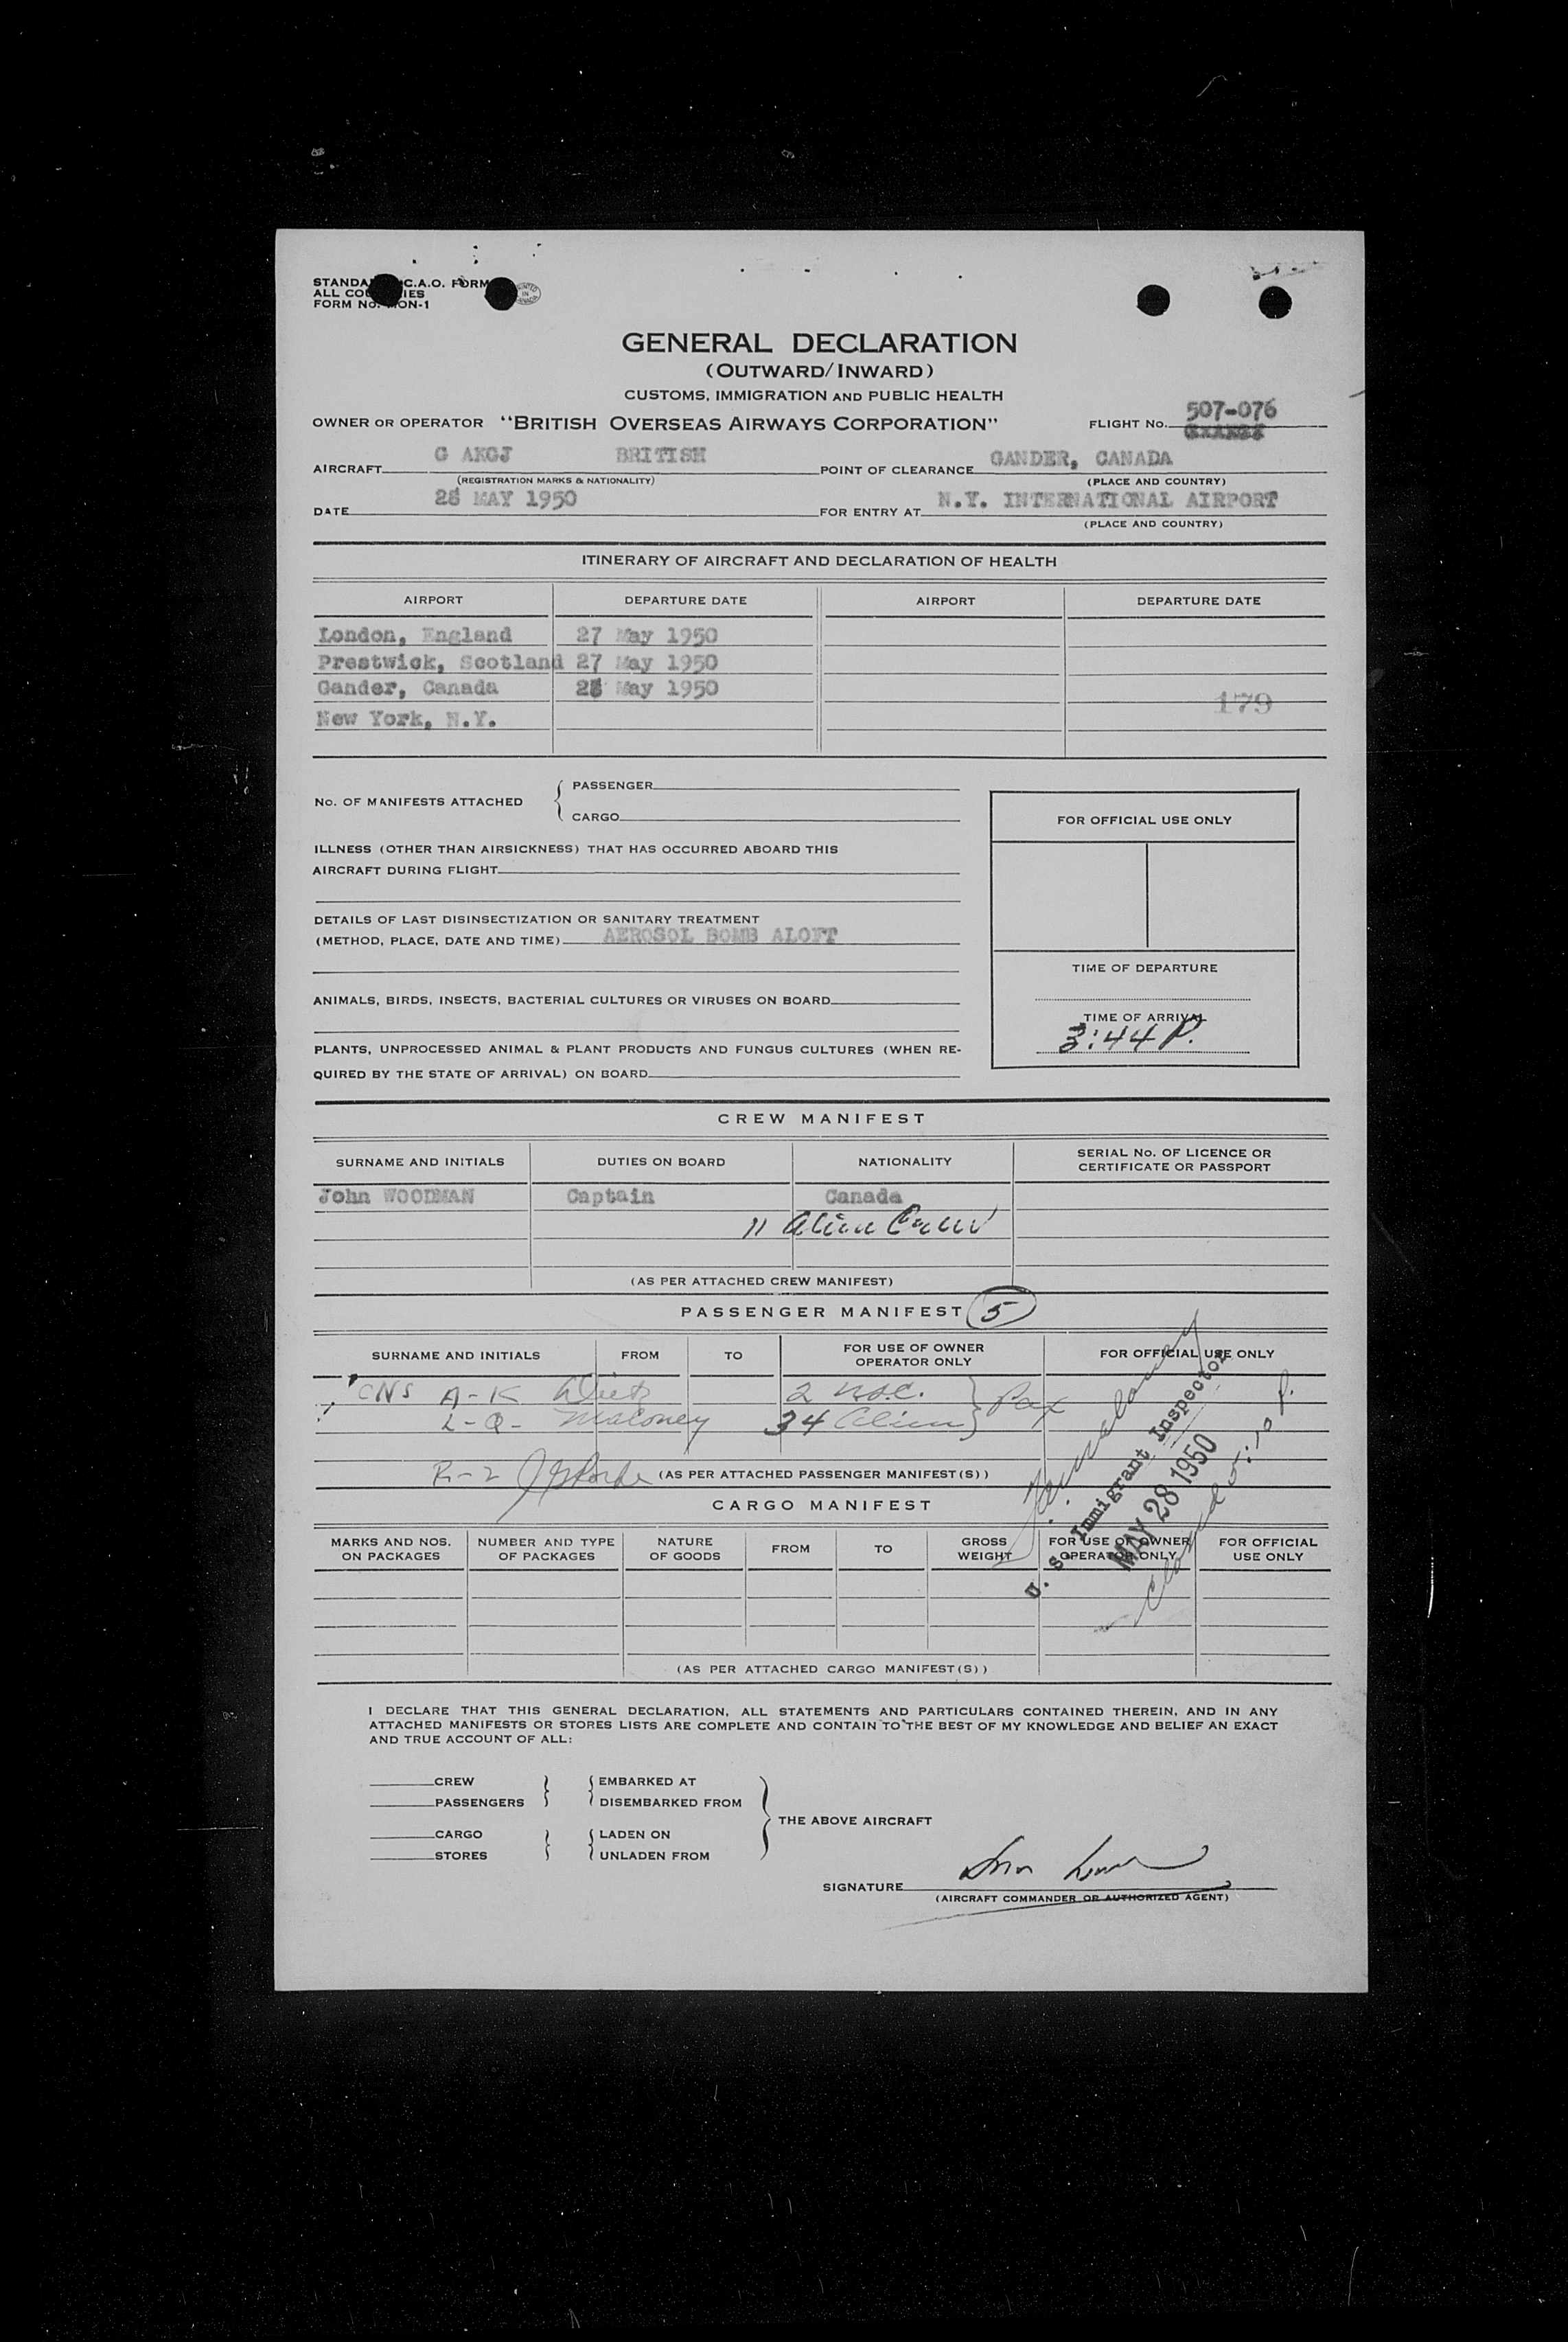 STANDA C.A.O. FORM
ALL CO IES
FORM No. ON-1
PRINTED IN CANADA
GENERAL DECLARATION
(OUTWARD/INWARD)
CUSTOMS, IMMIGRATION AND PUBLIC HEALTH
OWNER OR OPERATOR "BRITISH OVERSEAS AIRWAYS CORPORATION" FLIGHT No. 507-076
AIRCRAFT G AKGJ BRITISH POINT OF CLEARANCE GANDER, CANADA
(REGISTRATION MARKS & NATIONALITY) (PLACE AND COUNTRY)
DATE 28 MAY 1950 FOR ENTRY AT N.Y. INTERNATIONAL AIRPORT
(PLACE AND COUNTRY)
ITINERARY OF AIRCRAFT AND DECLARATION OF HEALTH
AIRPORT DEPARTURE DATE AIRPORT DEPARTURE DATE
London, England 27 May 1950
Prestwick, Scotland 27 May 1950
Gander, Canada 28 May 1950
179
New York, N.Y.
No. OF MANIFESTS ATTACHED { PASSENGER
CARGO
FOR OFFICIAL USE ONLY
ILLNESS (OTHER THAN AIRSICKNESS) THAT HAS OCCURRED ABOARD THIS
AIRCRAFT DURING FLIGHT
DETAILS OF LAST DISINSECTIZATION OR SANITARY TREATMENT
(METHOD, PLACE, DATE AND TIME) AEROSOL BOMB ALOFT
TIME OF DEPARTURE
ANIMALS, BIRDS, INSECTS, BACTERIAL CULTURES OR VIRUSES ON BOARD
TIME OF ARRIVAL
3:44 P.
PLANTS, UNPROCESSED ANIMAL & PLANT PRODUCTS AND FUNGUS CULTURES (WHEN RE-
QUIRED BY THE STATE OF ARRIVAL) ON BOARD
CREW MANIFEST
SURNAME AND INITIALS DUTIES ON BOARD NATIONALITY SERIAL No. OF LICENCE OR
CERTIFICATE OR PASSPORT
John WOODMAN Captain Canada
11 Alien Crew
(AS PER ATTACHED CREW MANIFEST)
PASSENGER MANIFEST 5
SURNAME AND INITIALS FROM TO FOR USE OF OWNER
OPERATOR ONLY FOR OFFICIAL USE ONLY
CNS A-K Dietz 2 USC. } Pax
L-Q- Maloney 34 Alien }
R-Z (AS PER ATTACHED PASSENGER MANIFEST(S))
U. S. Immigrant Inspector
MAY 28 1950
CARGO MANIFEST
MARKS AND NOS.
ON PACKAGES NUMBER AND TYPE
OF PACKAGES NATURE
OF GOODS FROM TO GROSS
WEIGHT FOR USE OF OWNER
OPERATOR ONLY FOR OFFICIAL
USE ONLY
(AS PER ATTACHED CARGO MANIFEST(S))
I DECLARE THAT THIS GENERAL DECLARATION, ALL STATEMENTS AND PARTICULARS CONTAINED THEREIN, AND IN ANY
ATTACHED MANIFESTS OR STORES LISTS ARE COMPLETE AND CONTAIN TO THE BEST OF MY KNOWLEDGE AND BELIEF AN EXACT
AND TRUE ACCOUNT OF ALL:
CREW } { EMBARKED AT
PASSENGERS } { DISEMBARKED FROM
} THE ABOVE AIRCRAFT
CARGO } { LADEN ON
STORES } { UNLADEN FROM
SIGNATURE
(AIRCRAFT COMMANDER OR AUTHORIZED AGENT)